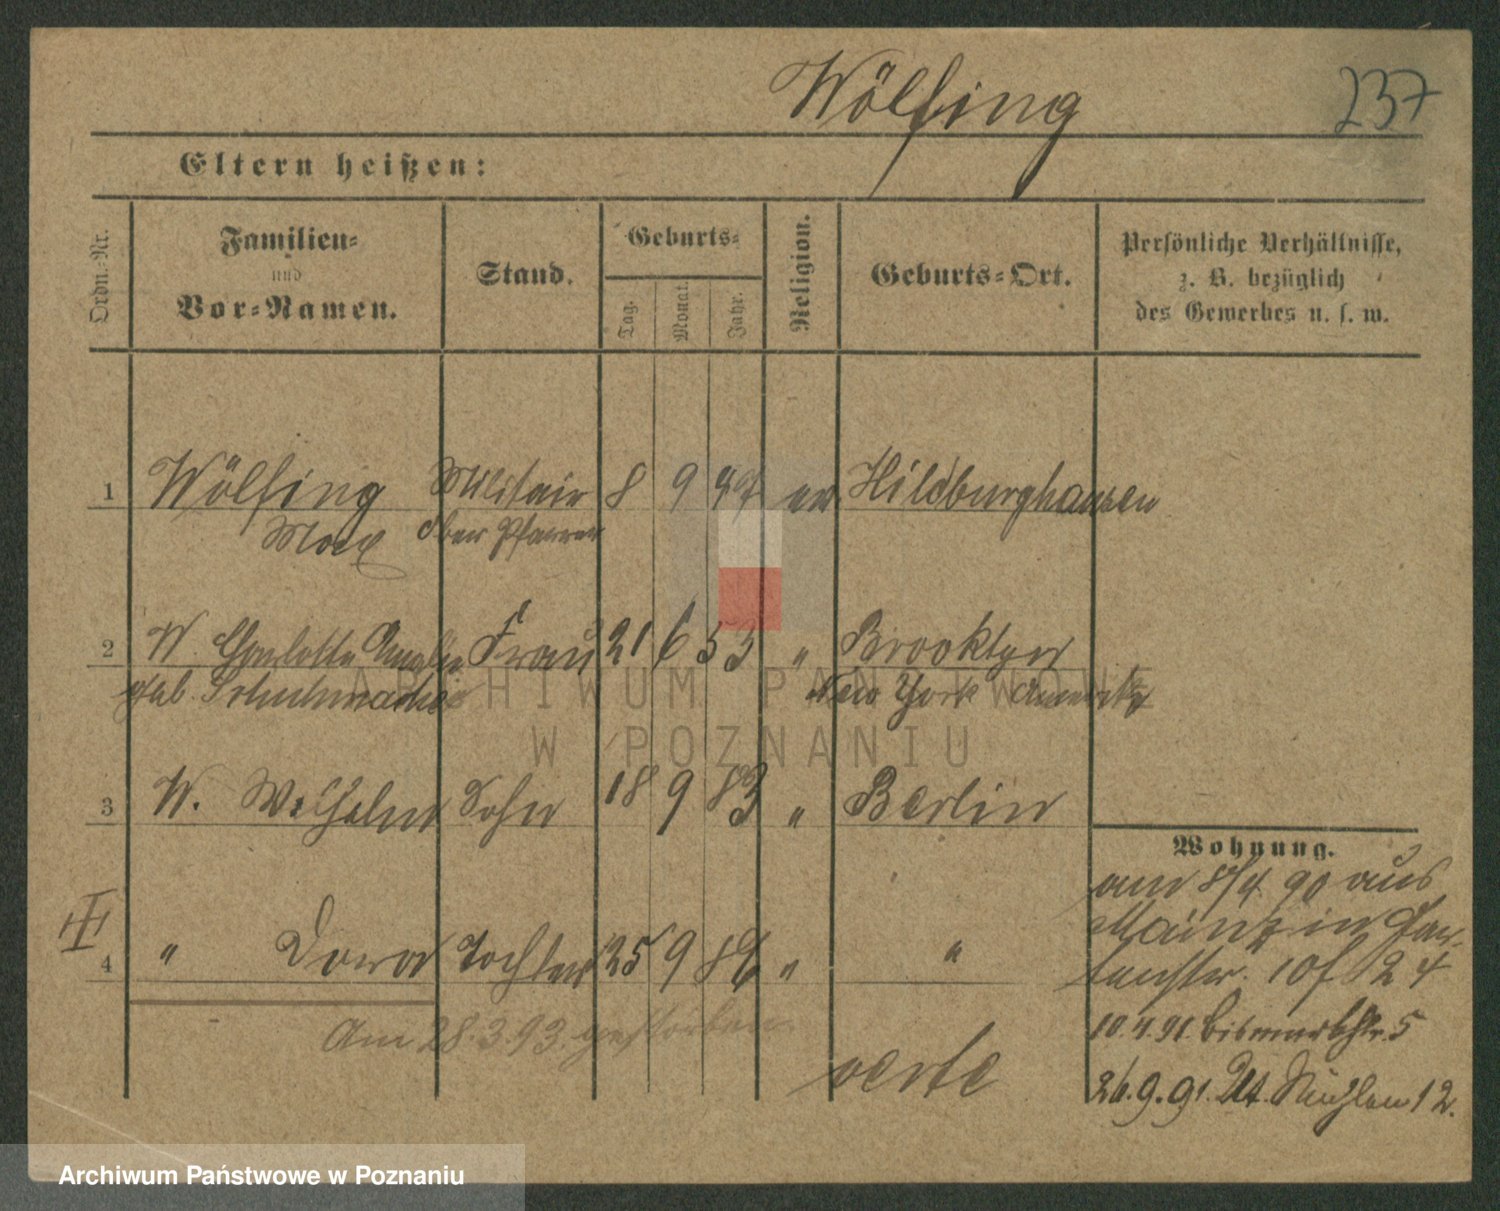 Wölfing 237
Eltern heißen:
Ordn.-Nr. Familien- und Vor-Namen. Stand. Geburts- Tag. Monat. Jahr. Religion. Geburts-Ort. Persönliche Verhältnisse, z. B. bezüglich des Gewerbes u. s. w.
1 Wölfing Militair 8 9 47 ev Hildburghausen
Max Ober Pfarrer
2 W. Charlotte Amalie Frau 21 6 53 " Brooklyn
geb. New York Amerika
3 W. Wilhelm Sohn 18 9 83 " Berlin
4 " Dora Tochter 25 9 86 " "
Am 28.3.93. gestorben
verte
Wohnung.
am 8/4 90 aus
Mainz in Gar-
tenstr. 10 f 24
10.4.91. Bismarckstr. 5
26.9.91. Mühlen 12.
ARCHIWUM PAŃSTWOWE
W POZNANIU
Archiwum Państwowe w Poznaniu